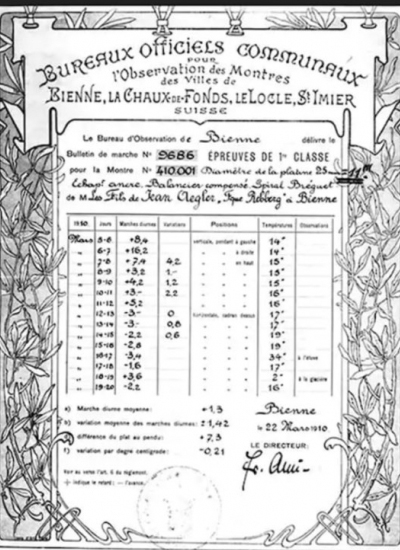 BUREAUX OFFICIELS COMMUNAUX
POUR
l'Observation des Montres
des Villes de
BIENNE, LA CHAUX-DE-FONDS, LE LOCLE, St IMIER
SUISSE
Le Bureau d'Observation de Bienne délivre le
Bulletin de marche No 9686 ÉPREUVES DE 1re CLASSE
pour la Montre No 410.001 Diamètre de la platine 25 = 11'''
Echapt ancre. Balancier compensé. Spiral Bréguet
de M Les Fils de Jean Aegler, Rebberg à Bienne
1910 Jours Marches diurnes Variations Positions Températures Observations
Mars 5-6 +8,4 verticale, pendant à gauche 14°
" 6-7 +16,2 " " à droite 14°
" 7-8 +7,4 4,2 " " en haut 15°
" 8-9 +3,2 1,- " " " 15°
" 9-10 +4,2 1,2 " " " 15°
" 10-11 +3,- 2,2 " " " 16°
" 11-12 +5,2 " " " 16°
" 12-13 -3,- 0 horizontale, cadran dessus 17°
" 13-14 -3,- 0,8 " " " 17°
" 14-15 -2,2 0,6 " " " 19°
" 15-16 -2,8 " " " 19°
" 16-17 -3,4 " " " 34° à l'étuve
" 17-18 -1,6 " " " 17°
" 18-19 +3,6 " " " 2° à la glacière
" 19-20 -2,2 " " " 16°
a) Marche diurne moyenne: +1,3
b) variation moyenne des marches diurnes: ±1,42
d) différence du plat au pendu: +7,3
f) variation par degré centigrade: -0,21
Bienne
le 22 Mars 1910
LE DIRECTEUR:
Voir au verso l'art. 6 du règlement.
+ indique le retard; — l'avance.